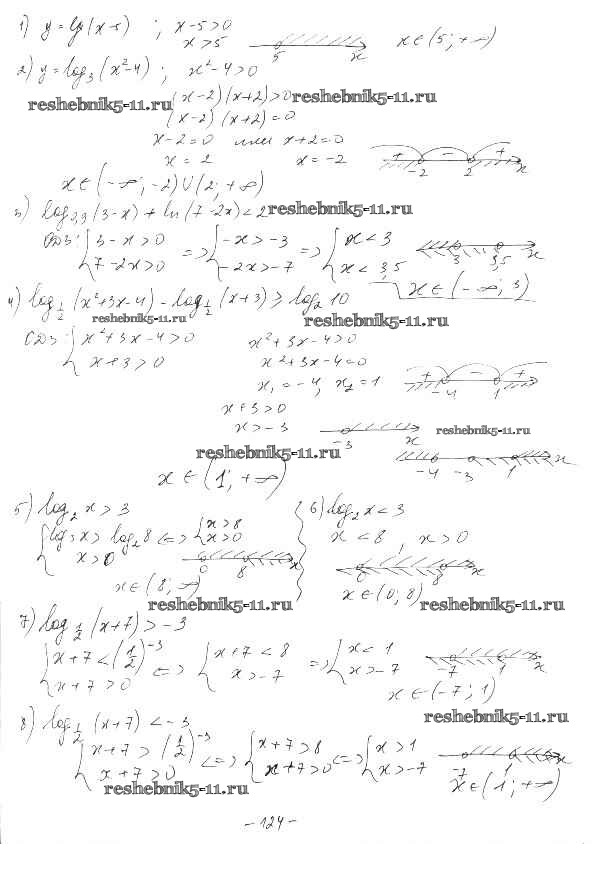 1) y = lg(x-5) ; x-5>0
x>5   5   x   x∈(5;+∞)
2) y = log₃(x²-4) ; x²-4>0
reshebnik5-11.ru (x-2)(x+2)>0 reshebnik5-11.ru
(x-2)(x+2)=0
x-2=0 или x+2=0
x=2   x=-2   + -2 - 2 +
x∈(-∞;-2)∪(2;+∞)
3) log₂,₃(3-x)+ln(7-2x)<2 reshebnik5-11.ru
ОДЗ: { 3-x>0 => { -x>-3 => { x<3   3   3,5   x
7-2x>0   -2x>-7   x<3,5
x∈(-∞;3)
4) log½(x²+3x-4) - log½(x+3) ≥ log₂10
reshebnik5-11.ru reshebnik5-11.ru
ОДЗ: { x²+3x-4>0   x²+3x-4>0
x+3>0   x²+3x-4=0
x₁=-4, x₂=1   + -4 - 1 +
x+3>0
x>-3   -3   x   reshebnik5-11.ru
reshebnik5-11.ru   -4 -3 1 x
x∈(1;+∞)
5) log₂x>3
{ log₂x>log₂8 <=> { x>8
x>0   x>0
0   8   x
x∈(8;∞)
6) log₂x<3
x<8, x>0
0   8   x
x∈(0;8)
reshebnik5-11.ru reshebnik5-11.ru
7) log½(x+7)>-3
{ x+7<(1/2)⁻³ <=> { x+7<8 => { x<1   -7   1   x
x+7>0   x>-7   x>-7
x∈(-7;1)
reshebnik5-11.ru
8) log½(x+7)<-3
{ x+7>(1/2)⁻³ <=> { x+7>8 <=> { x>1   -7   1   x
x+7>0   x+7>0   x>-7
x∈(1;+∞)
reshebnik5-11.ru
-124-